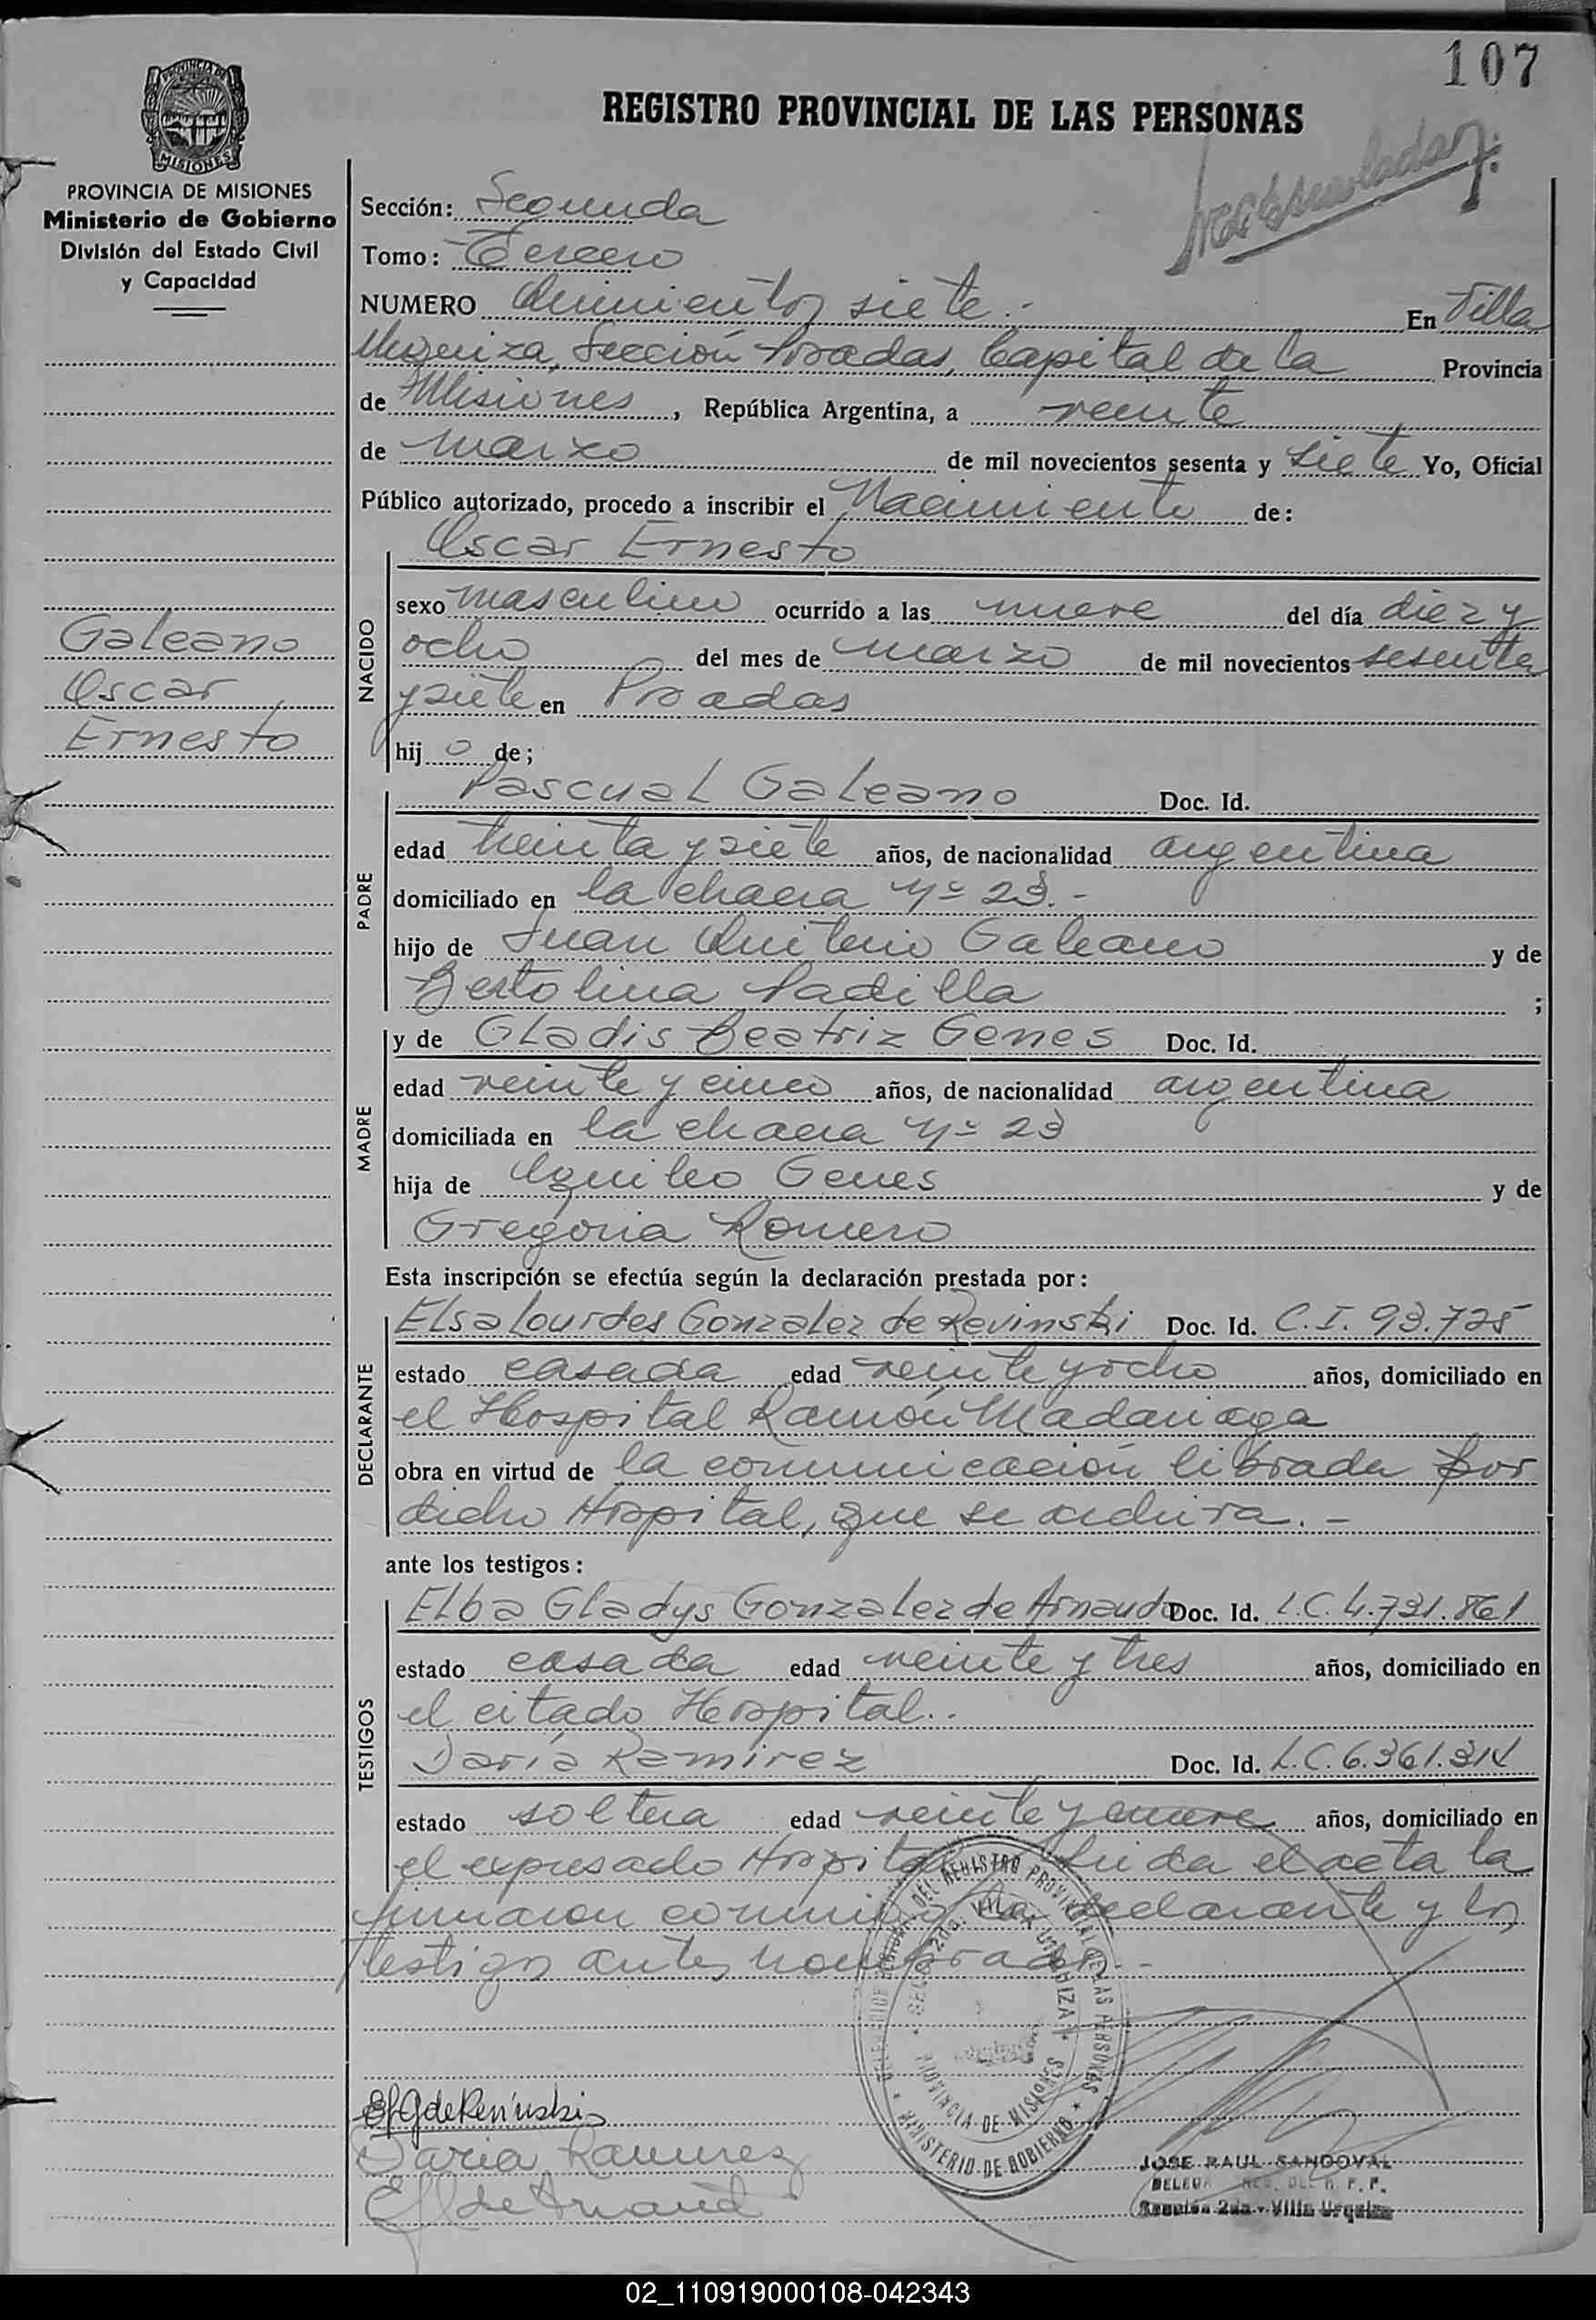 107
REGISTRO PROVINCIAL DE LAS PERSONAS
PROVINCIA DE MISIONES
Ministerio de Gobierno
División del Estado Civil
y Capacidad
Sección: Segunda
Tomo: Tercero
NUMERO Quinientos siete.- En Villa
Urquiza, Sección Posadas, Capital de la Provincia
de Misiones, República Argentina, a veinte
de marzo de mil novecientos sesenta y siete Yo, Oficial
Público autorizado, procedo a inscribir el Nacimiento de:
Oscar Ernesto
NACIDO
sexo masculino ocurrido a las nueve del día diez y
ocho del mes de marzo de mil novecientos sesenta
y siete en Posadas
hij o de;
Galeano
Oscar
Ernesto
PADRE
Pascual Galeano Doc. Id.
edad treinta y siete años, de nacionalidad argentina
domiciliado en la chacra Nº 23.-
hijo de Juan Quiterio Galeano y de
Bertolina Padilla ;
MADRE
y de Gladis Beatriz Genes Doc. Id.
edad veinte y cinco años, de nacionalidad argentina
domiciliada en la chacra Nº 23
hija de Aquileo Genes y de
Gregoria Romero
Esta inscripción se efectúa según la declaración prestada por:
DECLARANTE
Elsa Lourdes Gonzalez de Revinski Doc. Id. C.I. 93.725
estado casada edad veinte y ocho años, domiciliado en
el Hospital Ramón Madariaga
obra en virtud de la comunicación librada por
dicho Hospital, que se archiva.-
ante los testigos:
TESTIGOS
Elba Gladys Gonzalez de Arnaudo Doc. Id. L.C. 4.731.861
estado casada edad veinte y tres años, domiciliado en
el citado Hospital..
Daría Ramirez Doc. Id. L.C. 6.361.314
estado soltera edad veinte y nueve años, domiciliado en
el expresado Hospital. Leida el acta la
firmaron conmigo la declarante y los
testigos antes nombrados.-
ELG de Revinski
Daria Ramirez
JOSE RAUL SANDOVAL
Sección 2da - Villa Urquiza
DEL REGISTRO PROVINCIAL DE LAS PERSONAS
MINISTERIO DE GOBIERNO
PROVINCIA DE MISIONES
02_110919000108-042343